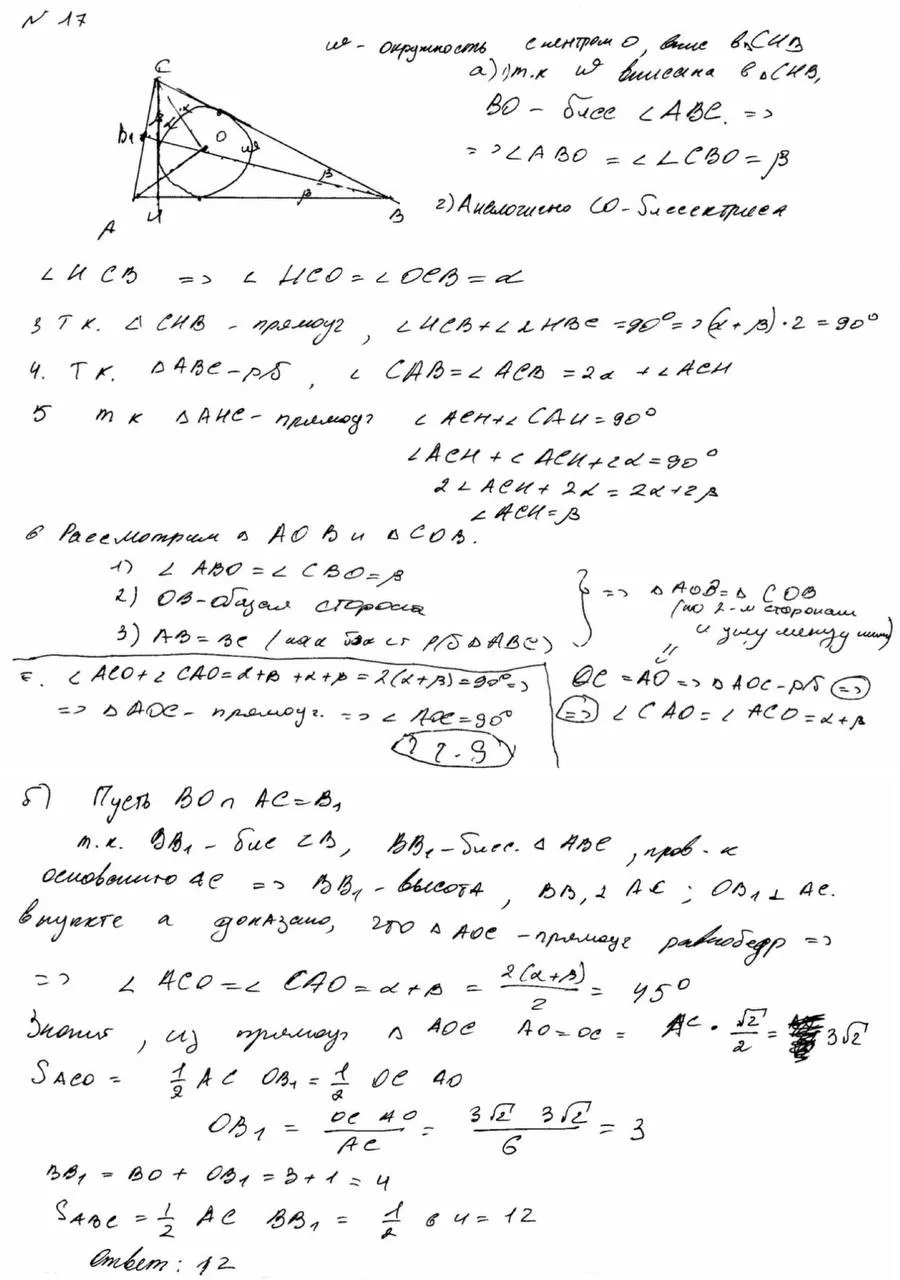 N 17
ω - окружность с центром O, впис в △CHB
а) 1) т.к ω вписана в △CHB,
BO - бисс ∠ABC. =>
=> ∠ABO = ∠∠CBO = β
2) Аналогично CO - биссектриса
C
B1
β α α
O
ω
β
β
A H B
∠HCB => ∠HCO = ∠OCB = α
3 Т К. △CHB - прямоуг, ∠HCB + ∠2HBC = 90° => (α + β) · 2 = 90°
4. Т К. △ABC - р/б, ∠CAB = ∠ACB = 2α + ∠ACH
5 т к △AHC - прямоуг ∠ACH + ∠CAH = 90°
∠ACH + ∠ACH + 2α = 90°
2∠ACH + 2α = 2α + 2β
∠ACH = β
6 Рассмотрим △AOB и △COB.
1) ∠ABO = ∠CBO = β
2) OB - общая сторона
3) AB = BC (как бок ст р/б △ABC)
=> △AOB = △COB
(по 2-м сторонам
и углу между ними)
OC = AO => △AOC - р/б =>
=> ∠CAO = ∠ACO = α + β
∠ACO + ∠CAO = α + β + α + β = 2(α + β) = 90° =>
=> △AOC - прямоуг. => ∠AOC = 90°
ч т. д
б) Пусть BO ∩ AC = B1
т.к. BB1 - бис ∠B, BB1 - бисс. △ABC, пров. к
основанию AC => BB1 - высота, BB1 ⊥ AC; OB1 ⊥ AC.
в пункте а доказано, что △AOC - прямоуг равнобедр =>
=> ∠ACO = ∠CAO = α + β = 2(α + β)/2 = 45°
Значит, из прямоуг △AOC AO = OC = AC · √2/2 = 3√2
SACO = 1/2 AC OB1 = 1/2 OC AO
OB1 = OC AO / AC = 3√2 3√2 / 6 = 3
BB1 = BO + OB1 = 3 + 1 = 4
SABC = 1/2 AC BB1 = 1/2 6 4 = 12
Ответ: 12